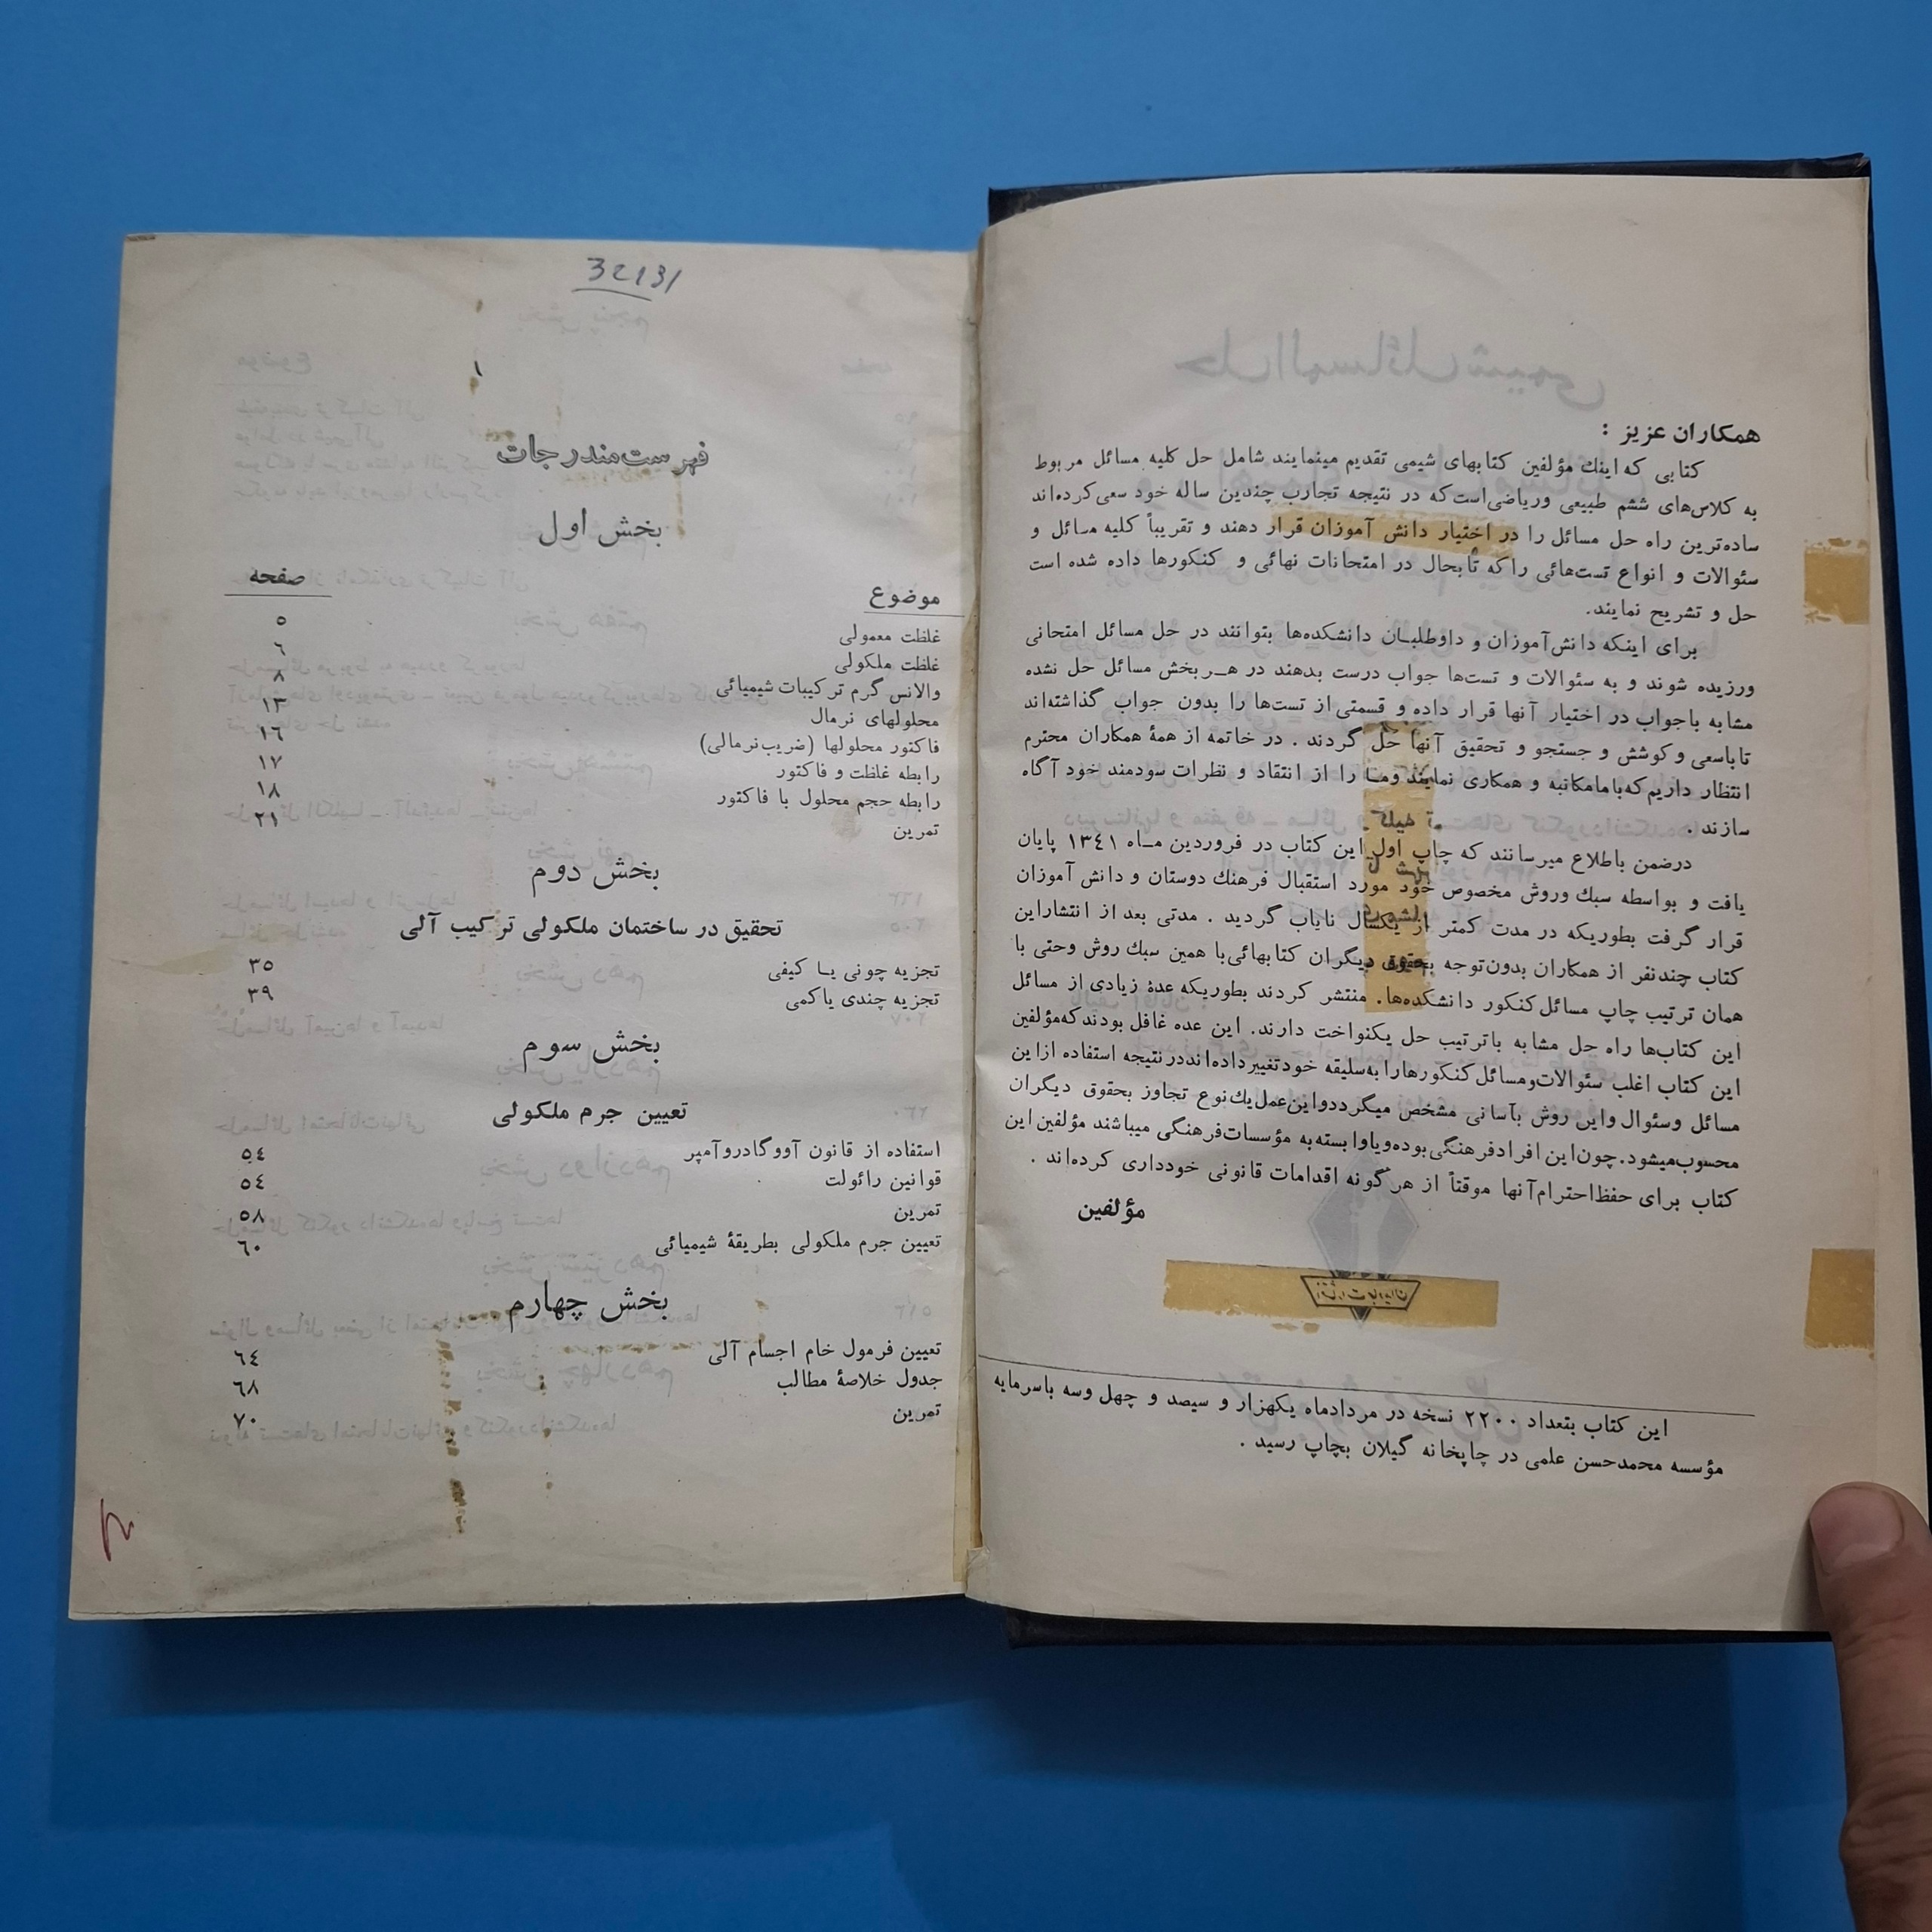 همکاران عزیز :
کتابی که اینك مؤلفین کتابهای شیمی تقدیم مینمایند شامل حل کلیه مسائل مربوط
به کلاس‌های ششم طبیعی وریاضی است که در نتیجه تجارب چندین ساله خود سعی کرده‌اند
ساده‌ترین راه حل مسائل را در اختیار دانش آموزان قرار دهند و تقریباً کلیه مسائل و
سئوالات و انواع تست‌هائی را که تابحال در امتحانات نهائی و کنکورها داده شده است
حل و تشریح نمایند.
برای اینکه دانش‌آموزان و داوطلبان دانشکده‌ها بتوانند در حل مسائل امتحانی
ورزیده شوند و به سئوالات و تست‌ها جواب درست بدهند در هر بخش مسائل حل نشده
مشابه باجواب در اختیار آنها قرار داده و قسمتی از تست‌ها را بدون جواب گذاشته‌اند
تا باسعی و کوشش و جستجو و تحقیق آنها حل گردند . در خاتمه از همهٔ همکاران محترم
انتظار داریم که با ما مکاتبه و همکاری نمایند و ما را از انتقاد و نظرات سودمند خود آگاه
سازند .
درضمن باطلاع میرسانند که چاپ اول این کتاب در فروردین ماه ۱۳٤۱ پایان
یافت و بواسطه سبك وروش مخصوص خود مورد استقبال فرهنك دوستان و دانش آموزان
قرار گرفت بطوریکه در مدت کمتر از یکسال نایاب گردید . مدتی بعد از انتشار این
کتاب چندنفر از همکاران بدون توجه بحقوق دیگران کتابهائی با همین سبك روش وحتی با
همان ترتیب چاپ مسائل کنکور دانشکده‌ها. منتشر کردند بطوریکه عدهٔ زیادی از مسائل
این کتاب‌ها راه حل مشابه با ترتیب حل یکنواخت دارند. این عده غافل بودند که مؤلفین
این کتاب اغلب سئوالات ومسائل کنکورها را به سلیقه خود تغییر داده‌اند در نتیجه استفاده از این
مسائل وسئوال واین روش بآسانی مشخص میگردد و این عمل یك نوع تجاوز بحقوق دیگران
محسوب میشود. چون این افراد فرهنگی بوده و یا وابسته به مؤسسات فرهنگی میباشند مؤلفین این
کتاب برای حفظ احترام آنها موقتاً از هرگونه اقدامات قانونی خودداری کرده‌اند .
مؤلفین
این کتاب بتعداد ۲۲۰۰ نسخه در مردادماه یکهزار و سیصد و چهل وسه باسرمایه
مؤسسه محمدحسن علمی در چاپخانه گیلان بچاپ رسید .
32131
۱
فهرست مندرجات
بخش اول
موضوع صفحه
غلظت معمولی ۵
غلظت ملکولی ٦
والانس گرم ترکیبات شیمیائی ۸
محلولهای نرمال ۱۳
فاکتور محلولها (ضریب نرمالی) ۱٦
رابطه غلظت و فاکتور ۱۷
رابطه حجم محلول با فاکتور ۱۸
تمرین ۲۱
بخش دوم
تحقیق در ساختمان ملکولی ترکیب آلی
تجزیه چونی یا کیفی ۳۵
تجزیه چندی یا کمی ۳۹
بخش سوم
تعیین جرم ملکولی
استفاده از قانون آووگادرو آمپر ۵٤
قوانین رائولت ۵٤
تمرین ۵۸
تعیین جرم ملکولی بطریقهٔ شیمیائی ٦۰
بخش چهارم
تعیین فرمول خام اجسام آلی ٦٤
جدول خلاصهٔ مطالب ٦۸
تمرین ۷۰